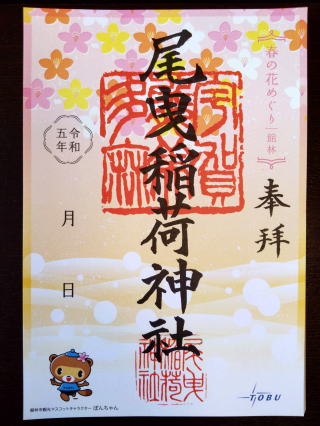 春の花めぐり 館林
奉拝
尾曳稲荷神社
令和
五年
月 日
館林市観光マスコットキャラクター ぽんちゃん
TOBU